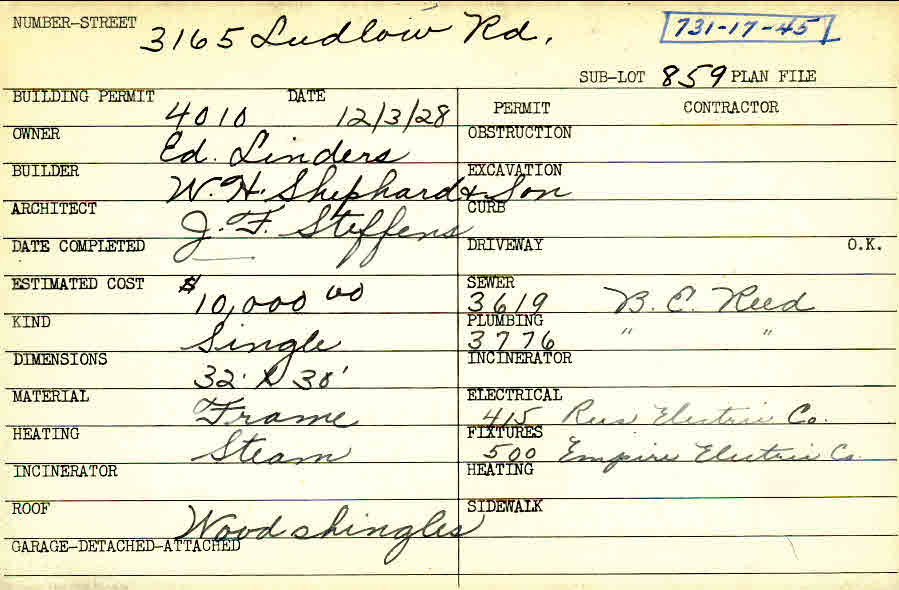 NUMBER-STREET 3165 Ludlow Rd. 731-17-45
SUB-LOT 859 PLAN FILE
BUILDING PERMIT 4010 DATE 12/3/28 PERMIT CONTRACTOR
OWNER Ed. Linders OBSTRUCTION
BUILDER W. H. Shephard & Son EXCAVATION
ARCHITECT J. F. Steffens CURB
DATE COMPLETED DRIVEWAY O.K.
ESTIMATED COST $10,000 00 SEWER 3619 B. C. Reed
KIND Single PLUMBING 3776 " "
DIMENSIONS 32' X 30' INCINERATOR
MATERIAL Frame ELECTRICAL 415 Electric Co.
HEATING Steam FIXTURES 500 Empire Electric Co
INCINERATOR HEATING
ROOF Wood shingles SIDEWALK
GARAGE-DETACHED-ATTACHED